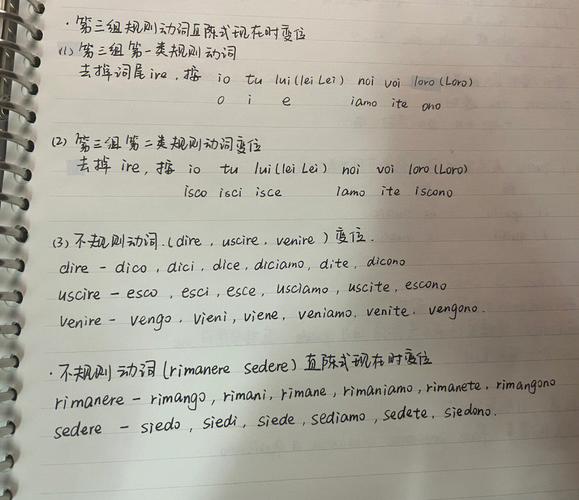 · 第三组规则动词直陈式现在时变位
(1) 第三组第一类规则动词
去掉词尾ire，接 io tu lui(lei Lei) noi voi loro(Loro)
o i e iamo ite ono
(2) 第三组第二类规则动词变位
去掉 ire，接 io tu lui(lei Lei) noi voi loro(Loro)
isco isci isce iamo ite iscono
(3) 不规则动词.(dire, uscire, venire) 变位.
dire - dico, dici, dice, diciamo, dite, dicono
uscire - esco, esci, esce, usciamo, uscite, escono
venire - vengo, vieni, viene, veniamo, venite, vengono.
· 不规则动词 (rimanere sedere) 直陈式现在时变位
rimanere - rimango, rimani, rimane, rimaniamo, rimanete, rimangono
sedere - siedo, siedi, siede, sediamo, sedete, siedono.